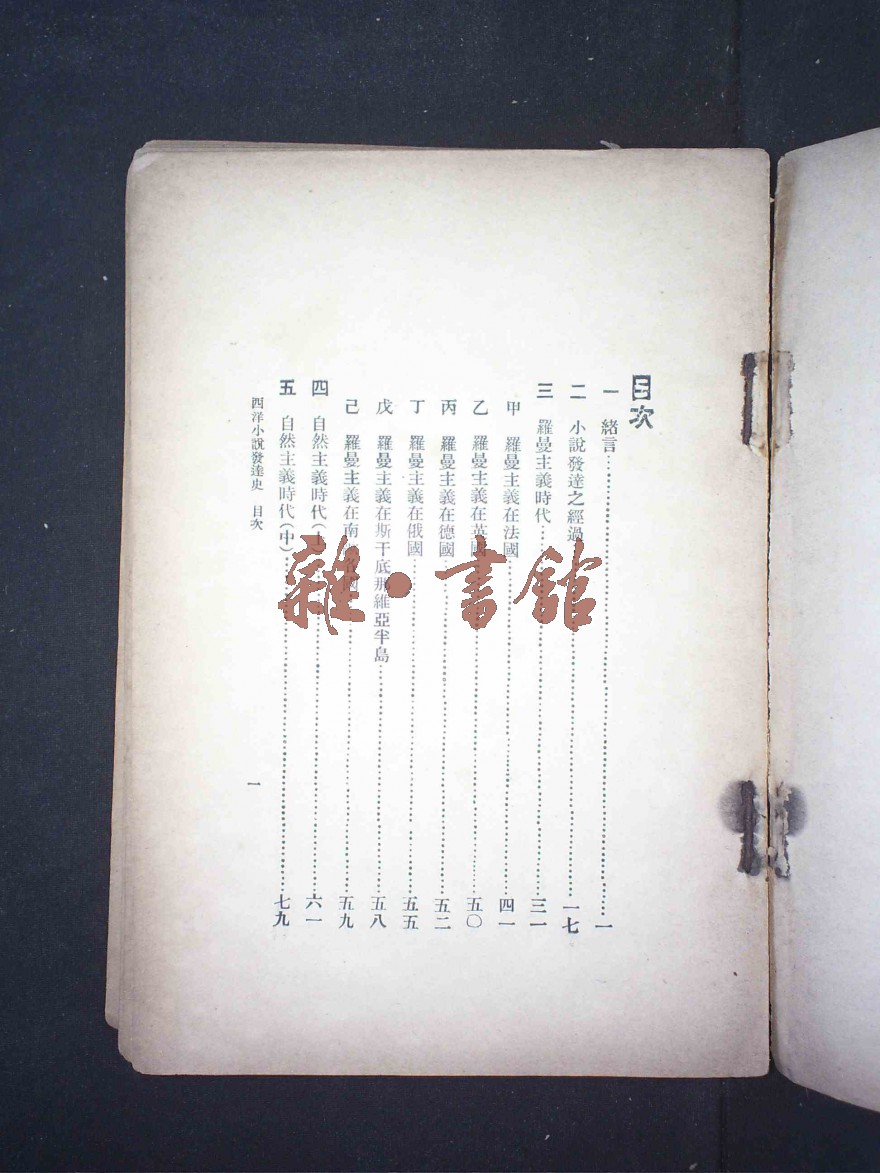 目次
一 緒言 一
二 小說發達之經過 一七
三 羅曼主義時代 三一
甲 羅曼主義在法國 四一
乙 羅曼主義在英國 五〇
丙 羅曼主義在德國 五二
丁 羅曼主義在俄國 五五
戊 羅曼主義在斯干底那維亞半島 五八
己 羅曼主義在南 國 五九
四 自然主義時代(上) 六一
五 自然主義時代(中) 七九
西洋小說發達史 目次
一
雜·書館